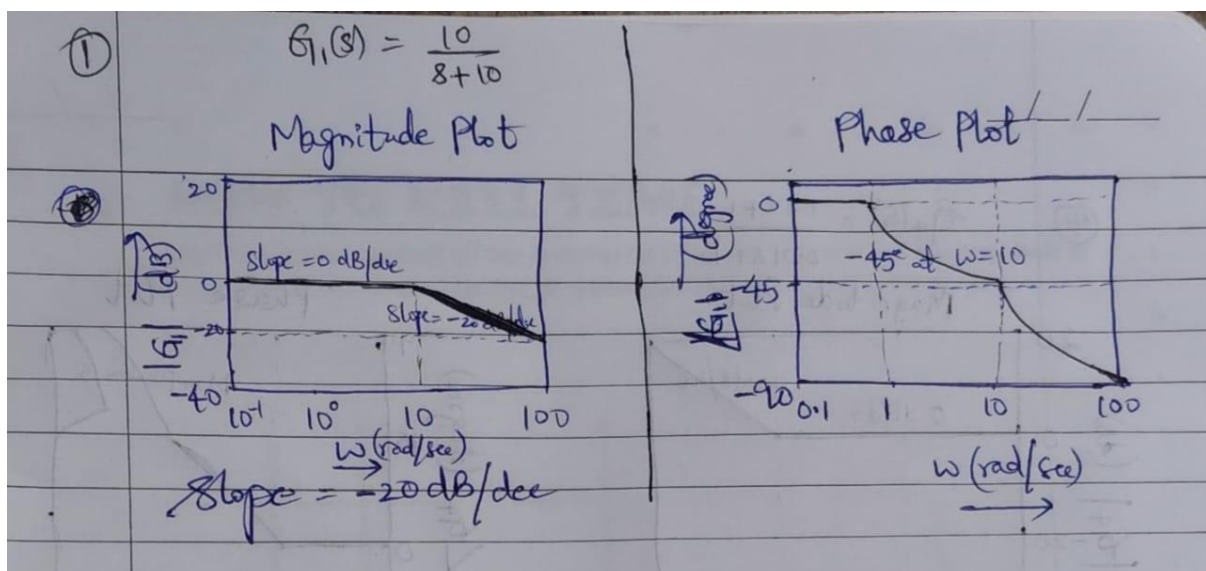 ①
G₁(s) = 10
s+10
Magnitude Plot
20
0
-20
-40
|G₁| (dB)
Slope = 0 dB/dec
Slope = -20 dB/dec
10⁻¹ 10⁰ 10 100
w (rad/sec)
Slope = -20 dB/dec
Phase Plot
/ /
0
-45
-90
(degree)
-45° at w=10
0.1 1 10 100
w (rad/sec)